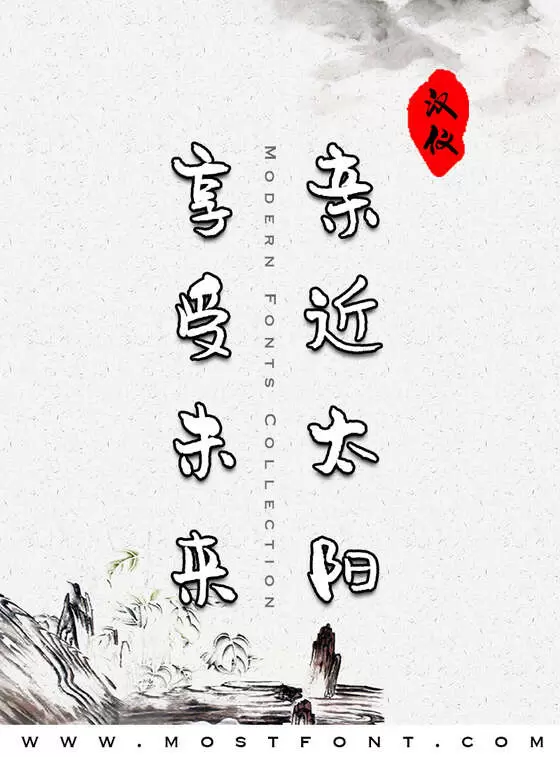 汉仪
亲近太阳
享受未来
MODERN FONTS COLLECTION
WWW.MOSTFONT.COM